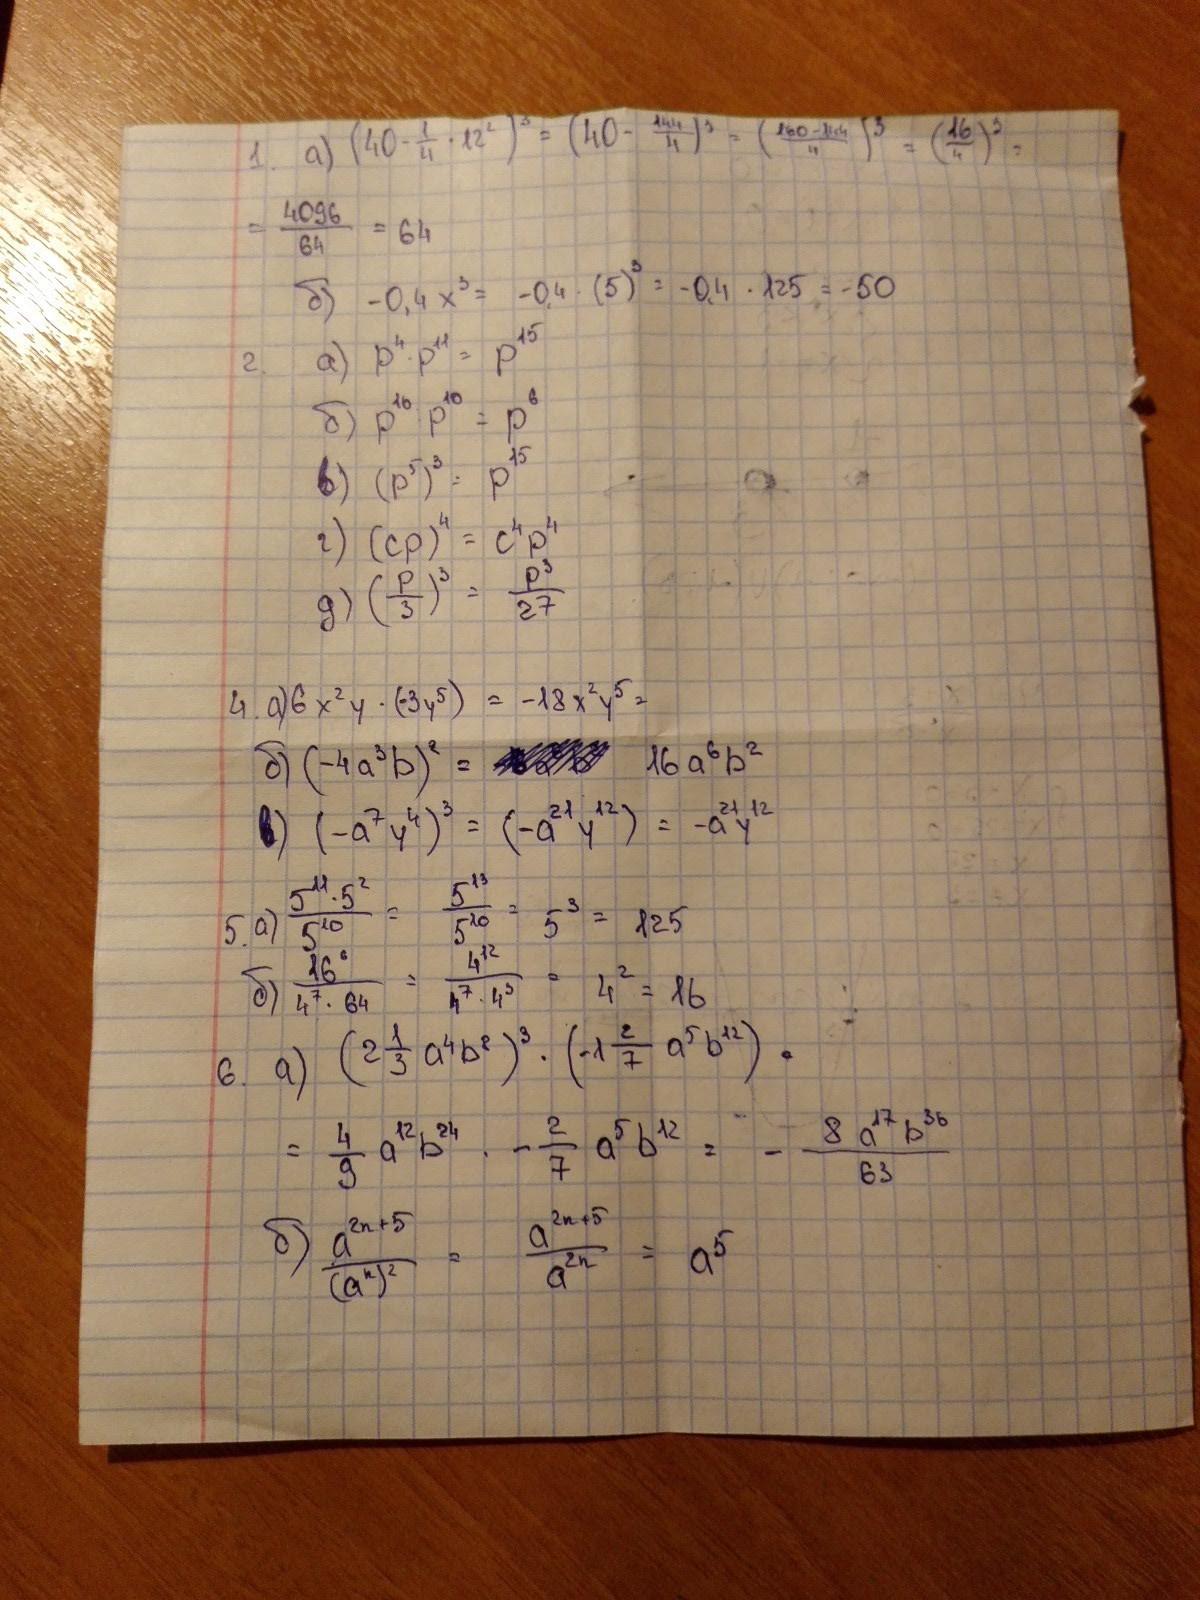 1. а) (40 - 1/4 · 12²)³ = (40 - 144/4)³ = (160-144/4)³ = (16/4)³ =
= 4096/64 = 64
б) -0,4x³ = -0,4 · (5)³ = -0,4 · 125 = -50
2. а) p⁴ · p¹¹ = p¹⁵
б) p¹⁶ · p¹⁰ = p⁶
в) (p⁵)³ = p¹⁵
г) (cp)⁴ = c⁴p⁴
д) (p/3)³ = p³/27
4. а) 6x²y · (-3y⁵) = -18x²y⁵ =
б) (-4a³b)² = 16a⁶b²
в) (-a⁷y⁴)³ = (-a²¹y¹²) = -a²¹y¹²
5. а) 5¹¹·5²/5¹⁰ = 5¹³/5¹⁰ = 5³ = 125
б) 16⁶/4⁷ · 64 = 4¹²/4⁷ · 4³ = 4² = 16
6. а) (2 1/3 a⁴b⁸)³ · (-1 2/7 a⁵b¹²) ·
= 4/9 a¹²b²⁴ · - 2/7 a⁵b¹² = - 8a¹⁷b³⁶/63
б) a²ⁿ⁺⁵/(aⁿ)² = a²ⁿ⁺⁵/a²ⁿ = a⁵